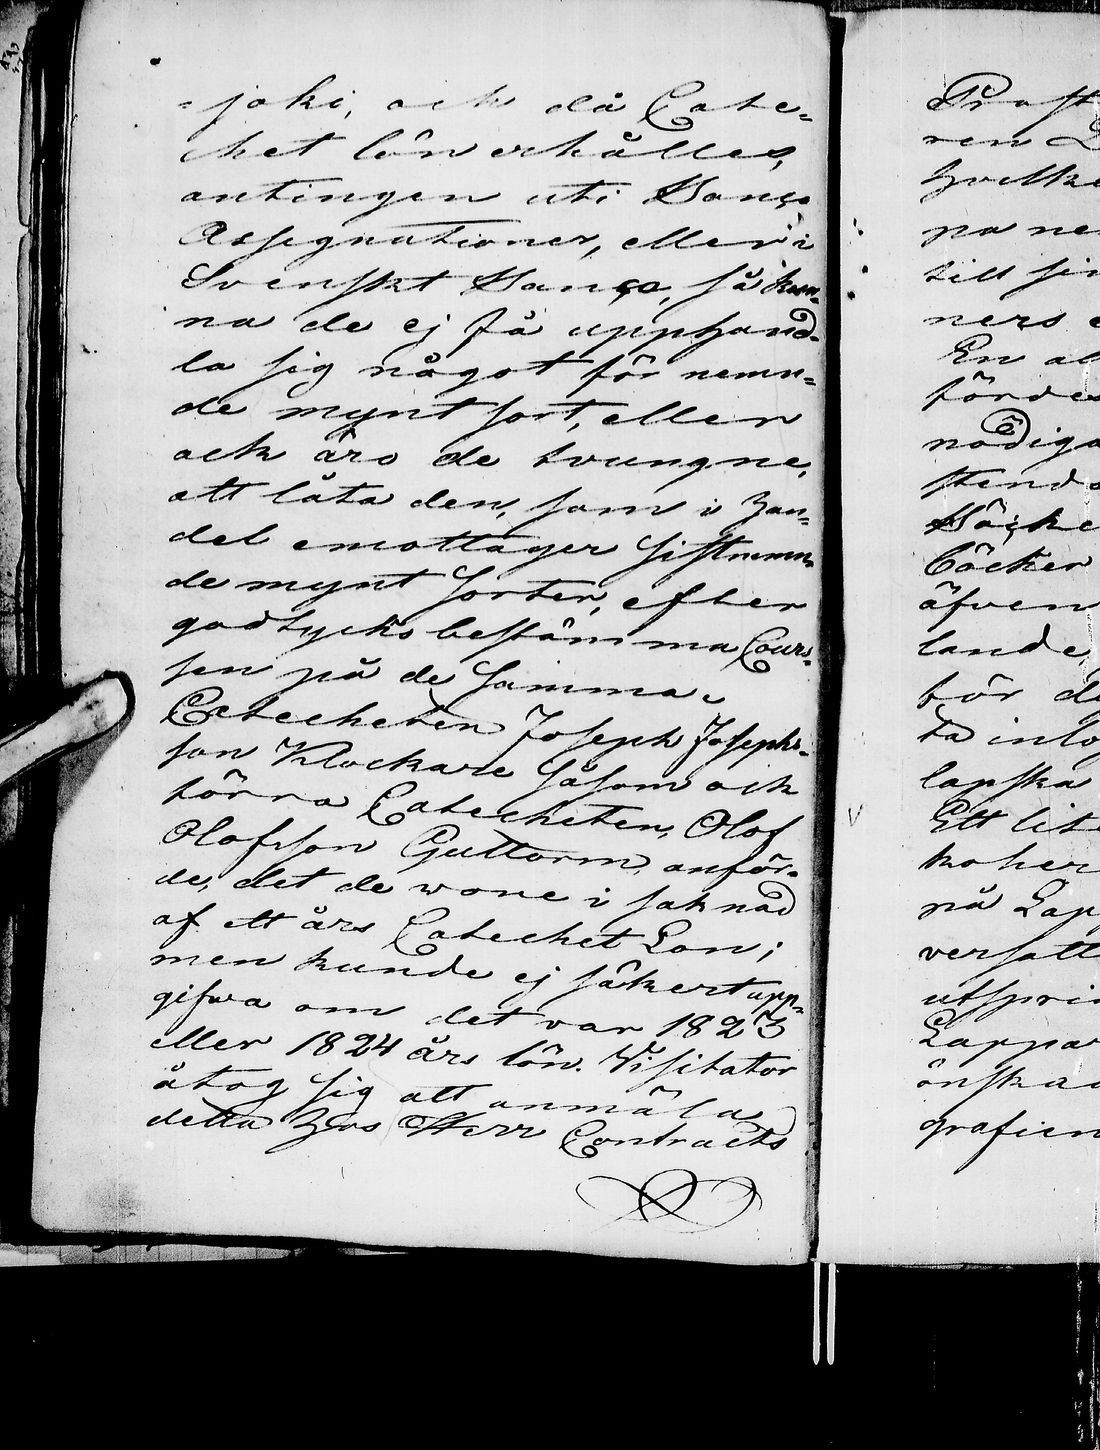 =joki, och då Cate=
chet lön erhålles,
antingen uti Banço
Assignationer, eller i
Svenskt Banço, så kun=
na de ej få upphand=
la sig något för nemn=
de mynt sort, eller
ock äro de tvungne,
att låta den, som i han=
del emottager sistnemn=
de mynt sorter, efter
godtycke bestämma Cour=
sen på de samma.
Catecheten Joseph Josephs=
son Klockare såsom ock
förra Catecheten, Olof
Olofsson Guttorm, anför=
de, det de wore i saknad
af ett års Catechet Lön;
men kunde ej säkert upp=
gifwa om det var 1823
eller 1824 års lön. Visitator
åtog sig att anmäla
detta hos Herr Contracts
Prost
ren
hvilke
pa ne
till sin
ners
En al
fördes
nådiga
stend
böcker
äfven
lande,
för d
ta inlo
lapska
Ett lite
koher
på Lap
versatt
utspri
Lappar
önskad
grafien